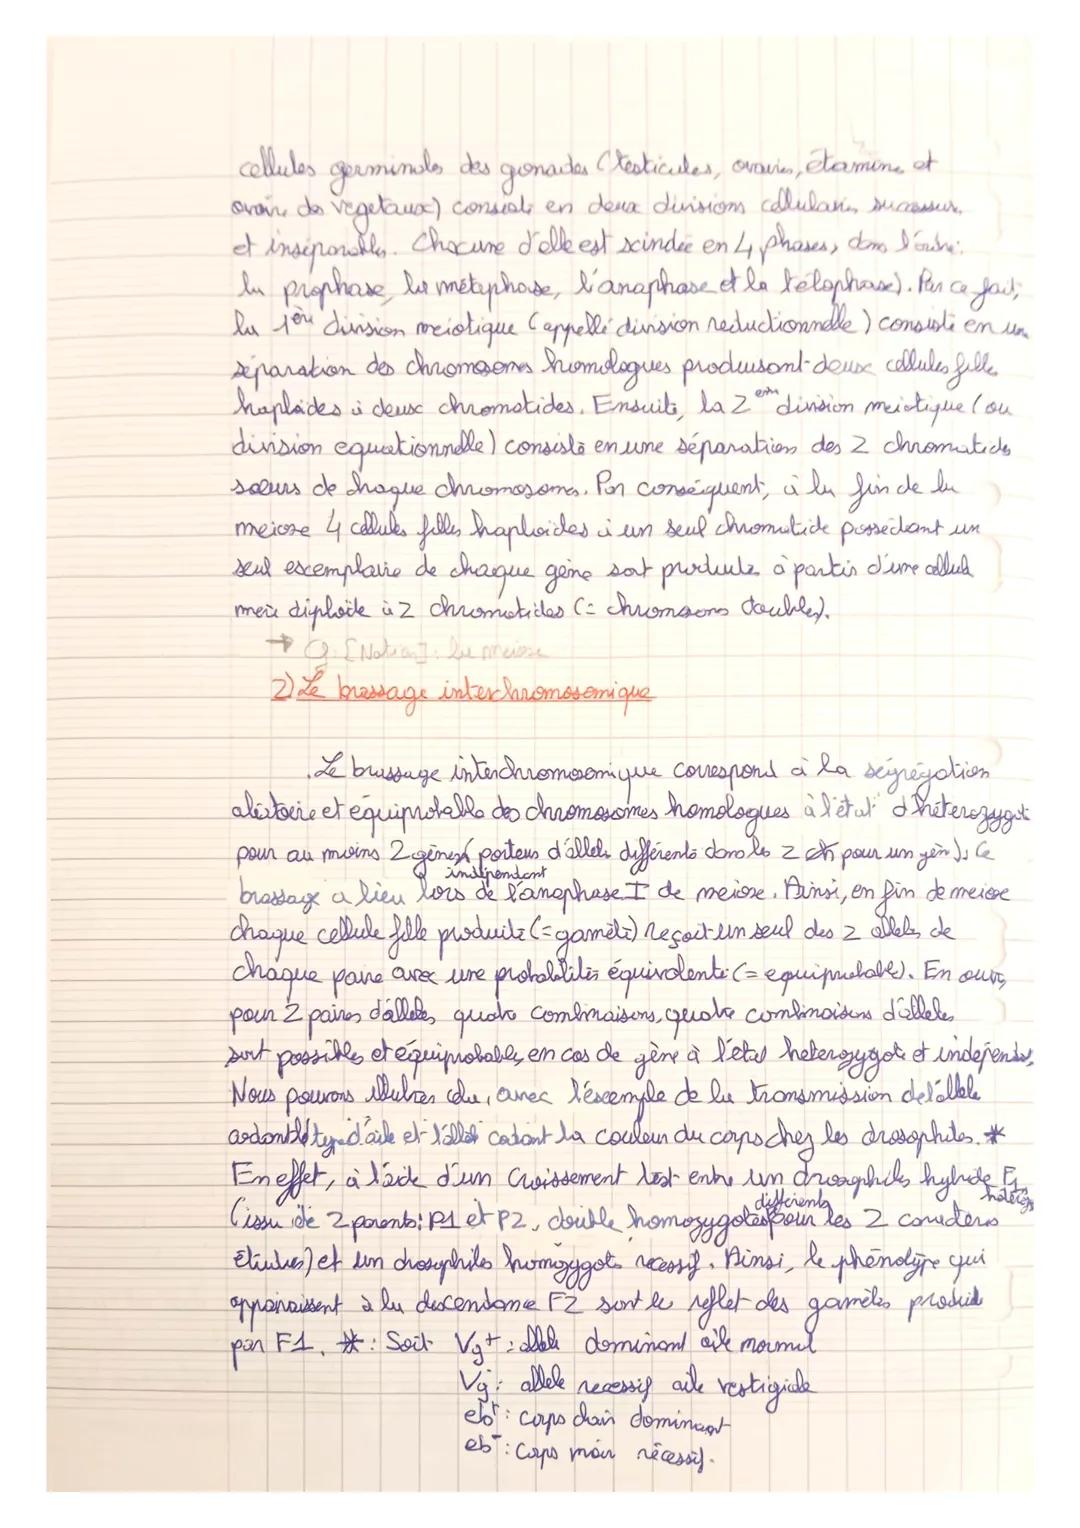 cellules germinales des gonades (testicules, ovaires, étamine et
ovaire des vegetaux) consiste en deux divisions cellulaires
et inséparables. Chacune d'elle est scindée en 4 phases, dans l'ordre:
la prophase, la métaphase, l'anaphase et la télophase). Par ce fait,
la 1ère division meiotique (appellé division reductionnelle) consiste en une
séparation des chromosomes homologues produisant deux cellules filles
haploïdes à deux chromatides. Ensuite, la 2em division meiotique (ou
division equationnelle) consiste en une séparation des 2 chromatides
sœurs de chaque chromosomes. Par conséquent, à la fin de la
meiose 4 cellules filles haploides à un seul chromatide possédant un
seul exemplaire de chaque gène sont produites à partir d'une cellule
mère diploïde à 2 chromatides (= chromosomes doubles).
→ Q. [Notion]: la meiose
2) Le brassage interchromosomique
. Le brassage interchromosomique correspond à la ségrégation
aléatoire et équiprobable des chromosomes homologues à l'état d'hétérozygote
pour au moins 2 gènes (porteurs d'allèles différents dans les 2 ch pour un gèn). Ce
indépendant
brassage a lieu lors de l'anaphase I de meiose. Ainsi, en fin de meiose
chaque cellule fille produite (= gamète) reçoit un seul des 2 allèles de
chaque paire avec une probabilités équivalente (= equiprobable). En outre,
pour 2 paires d'allèles, quatre combinaisons, quatre combinaisons d'allèles
sont possibles et équiprobables, en cas de gène à l'état heterozygote et indépendant.
Nous pouvons illustrer cela, avec l'exemple de la transmission de l'allèle
type d'aile et l'allèle codant la couleur du corps chez les drosophiles. *
En effet, à l'aide d'un croissement test entre un drosophiles hybride F1
différents hétérozy
(issu de 2 parents: P1 et P2, double homozygotes pour les 2 caractères
étudiés) et un drosophiles homozygote recessif. Ainsi, le phénotype qui
apparaissent à la descendance F2 sont le reflet des gamètes produit
par F1. *: Soit Vg+ : allèle dominant aile normal
Vg-: allele recessif aile vestigiale
eb+: corps clair dominant
eb-: corps noir récessif.